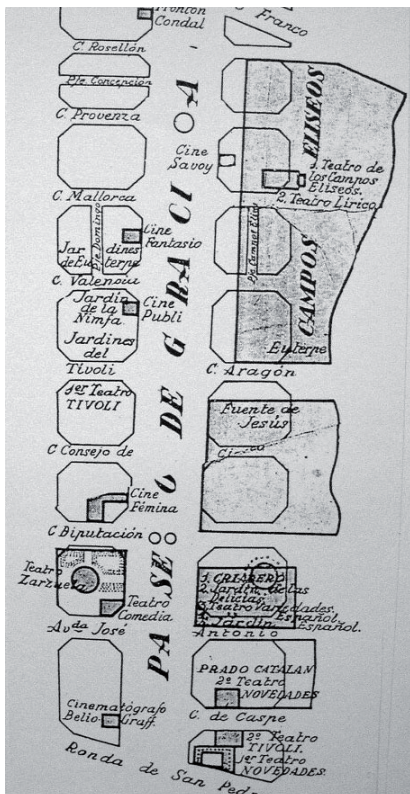 Frontón
Condal
Franco
C. Rosellón
Pje. Concepción
C. Provenza
Cine
Savoy
ELISEOS
1. Teatro de
los Campos
Elíseos.
2. Teatro Lírico
C. Mallorca
Cine
Fantasio
Pje Domingo
Jardines
de Euterpe
Pje Campos Elíseos
CAMPOS
C. Valencia
Jardín
de la
Ninfa
Cine
Publi
Jardines
del
Tívoli
Euterpe
C. Aragón
1er Teatro
TIVOLI
Fuente de
Jesús
C Consejo de
Ciento
Cine
Fémina
C Diputación
PASEO DE GRACIA
Teatro
Zarzuela
Teatro
Comedia
1. CRIADERO
2. Jardín de las
Delicias
3. Teatro Variedades.
Español.
Jardín Español.
Avda José Antonio
PRADO CATALAN
2º Teatro
NOVEDADES
Cinematógrafo
Belio Graff.
C. de Caspe
2º Teatro
TIVOLI.
1er Teatro
NOVEDADES.
Ronda de San Ped